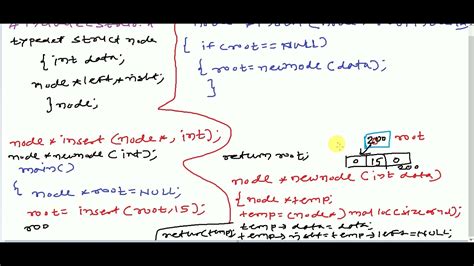 typedef struct node
{int data;
node *left,*right;
}node;
node *insert(node*, int);
node *newnode(int);
main()
{ node *root=NULL;
root= insert(root,15);
roo
{ if(root==NULL)
{ root=newnode(data);
}
return root;
200 root
0 15 0
200
node *newnode(int data)
{node *temp;
temp=(node*)malloc(sizeof(node));
temp→data=data;
temp→right=temp→left=NULL;
return(temp);